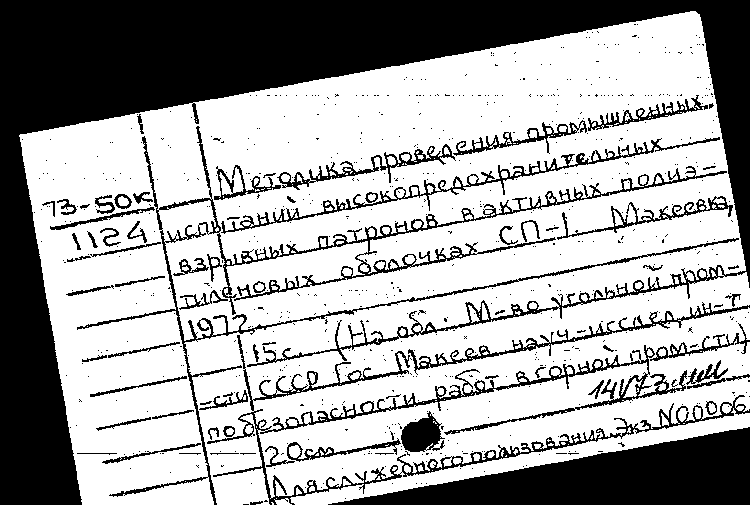 Методика проведения промышленных
73-50к
1124
испытаний высокопредохранительных
взрывных патронов в активных полиэ-
тиленовых оболочках СП-1. Макеевка,
1972.
15с. (На обл.: М-во угольной пром-
-сти СССР Гос Макеев науч-исслед. ин-т
по безопасности работ в горной пром-сти)
20см
Для служебного пользования Экз N00006